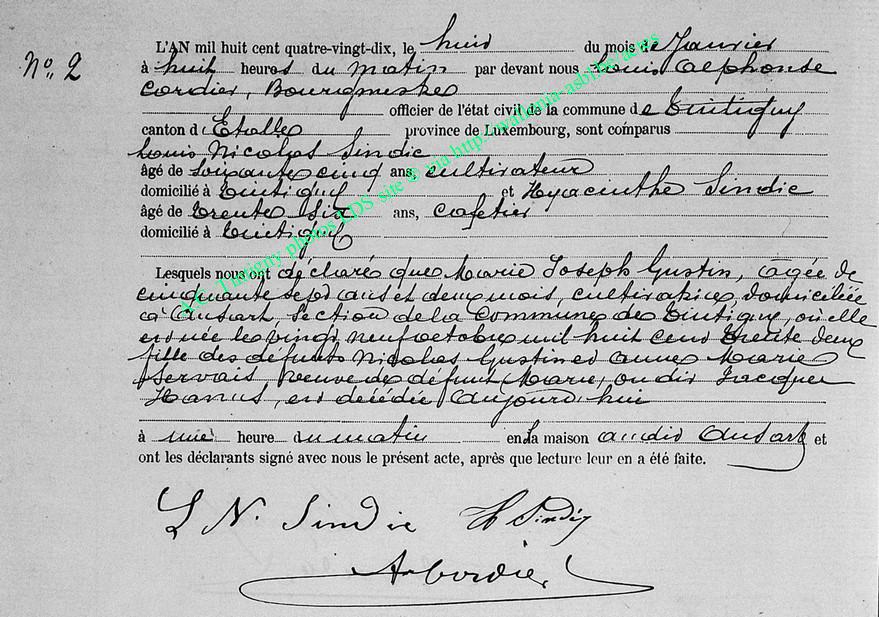 N° 2
L'AN mil huit cent quatre-vingt-dix, le huit du mois de Janvier
à huit heures du matin par devant nous Louis Alphonse
Cordier, Bourgmestre
officier de l'état civil de la commune de Tintigny
canton d'Etalle province de Luxembourg, sont comparus
Louis Nicolas Sindic
âgé de soixante cinq ans, cultivateur
domicilié à Tintigny et Hyacinthe Sindic
âgé de trente six ans, cafetier
domicilié à Tintigny
Lesquels nous ont déclaré que Marie Joseph Gustin, agée de
cinquante sept ans et deux mois, cultivatrice, domiciliée
à Ansart section de la commune de Tintigny, où elle
est née le vingt neuf octobre mil huit cent trente deux
fille des défunts Nicolas Gustin et Anne Marie
Servais, veuve de défunt Marie, ou dit Jacques
Hanus, est décédée aujourd'hui
à une heure du matin en la maison audit Ansart et
ont les déclarants signé avec nous le présent acte, après que lecture leur en a été faite.
L N. Sindic H Sindic
A Cordier
A.C. Tintigny photos LDS site via http://wallonia-asbl.be/actes